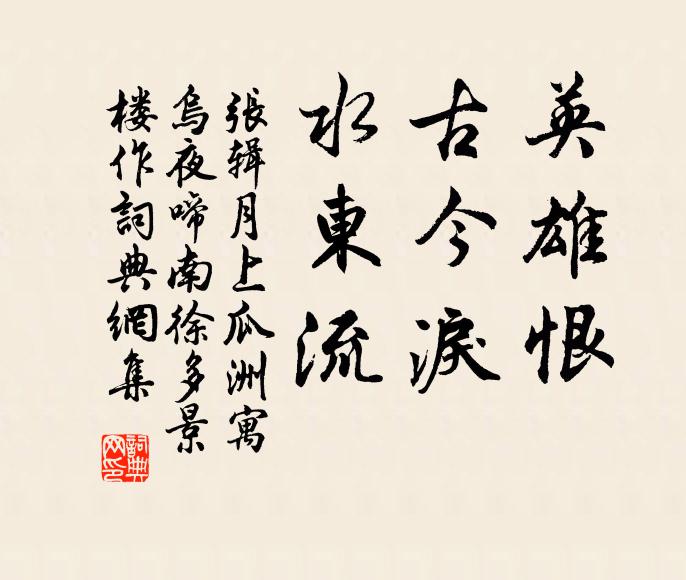 英雄恨
古今淚
水東流
張輯月上瓜洲寓
烏夜啼南徐多景
楼作詞典網集
詞典
网印